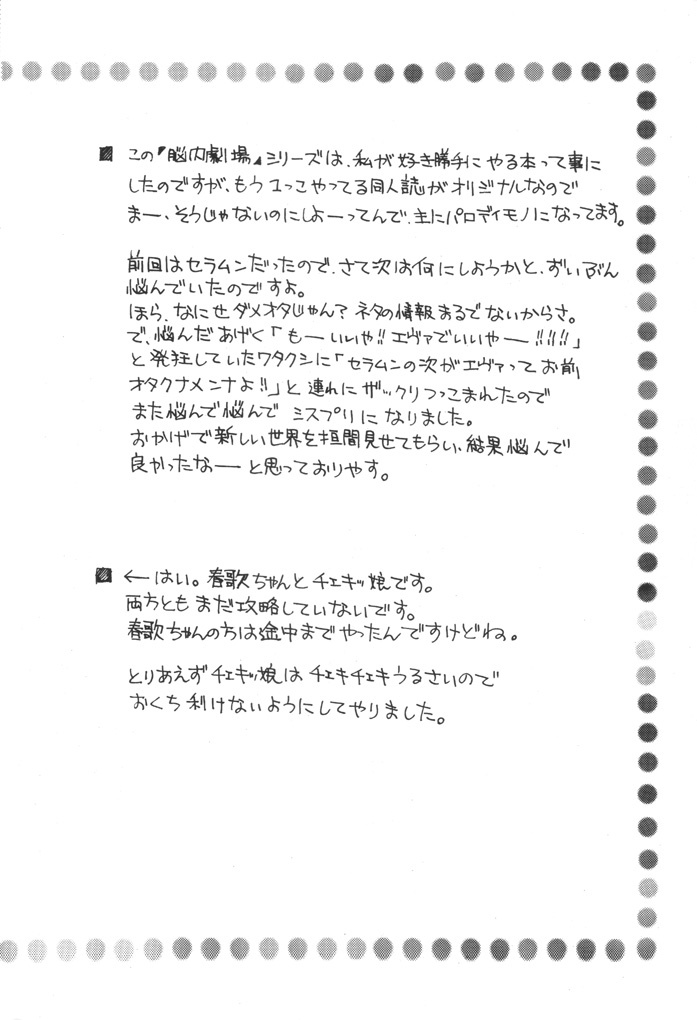 ■ この『脳内劇場』シリーズは、私が好き勝手にやる本って事に
したのですが、もう1つやってる同人誌がオリジナルなので
まー、そうじゃないのにしよーってんで、主にパロディモノになってます。
前回はセラムンだったので、さて次は何にしようかと、ずいぶん
悩んでいたのですよ。
ほら、なにせダメオタじゃん?ネタの情報まるでないからさ。
で、悩んだあげく「もーいいや!!エヴァでいいやー!!!!」
と発狂していたワタクシに「セラムンの次がエヴァってお前
オタクナメンナよ!!」と連れにザックリつっこまれたので
また悩んで悩んで ミスプリになりました。
おかげで新しい世界を垣間見せてもらい、結果悩んで
良かったなーと思っておりやす。
■ ←はい。春歌ちゃんとチェキッ娘です。
両方ともまだ攻略していないです。
春歌ちゃんの方は途中までやったんですけどね。
とりあえずチェキッ娘はチェキチェキうるさいので
おくち利けないようにしてやりました。